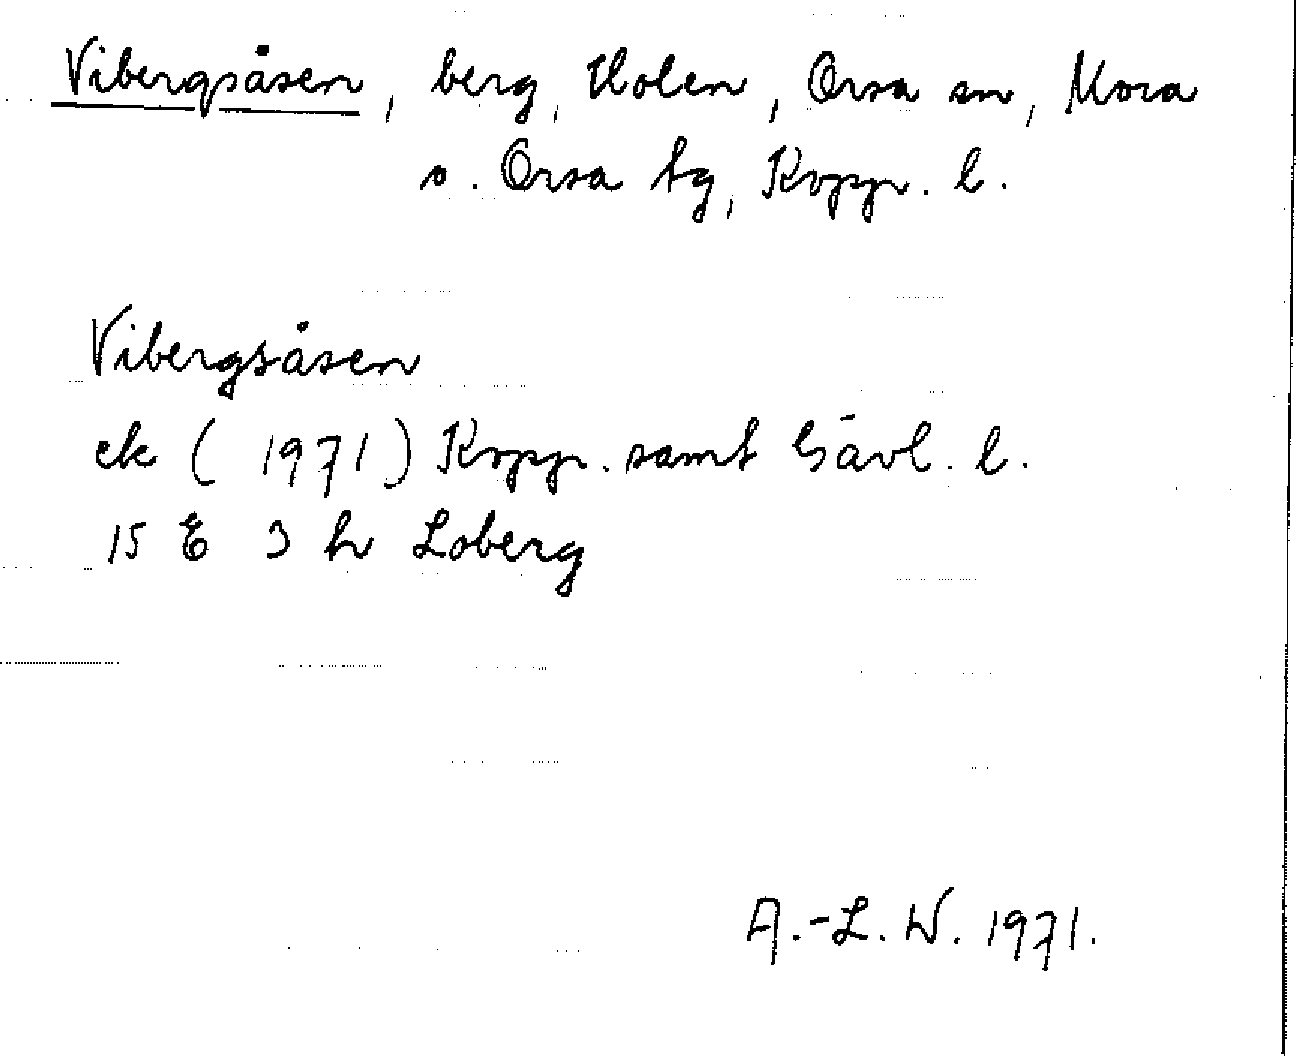 Vibergsåsen, berg, Holen, Orsa sn, Mora
o. Orsa tg, Kopp. l.
Vibergsåsen
ek (1971) Kopp. samt Gävl. l.
15 E 3 h Loberg
A.-L. W. 1971.